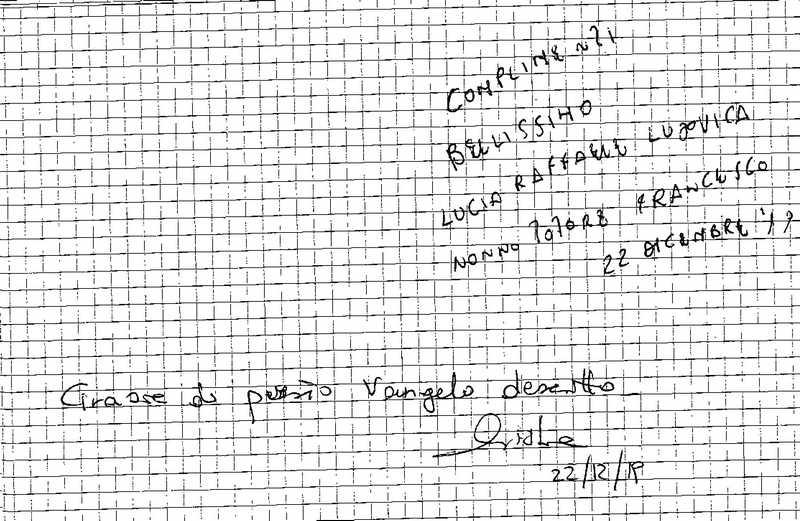 COMPLIMENTI
BELLISSIMO
LUCIA RAFFAELE LUDOVICA
NONNO TOTORE FRANCESCO
22 DICEMBRE '19
Grazie di Vangelo
22/12/19